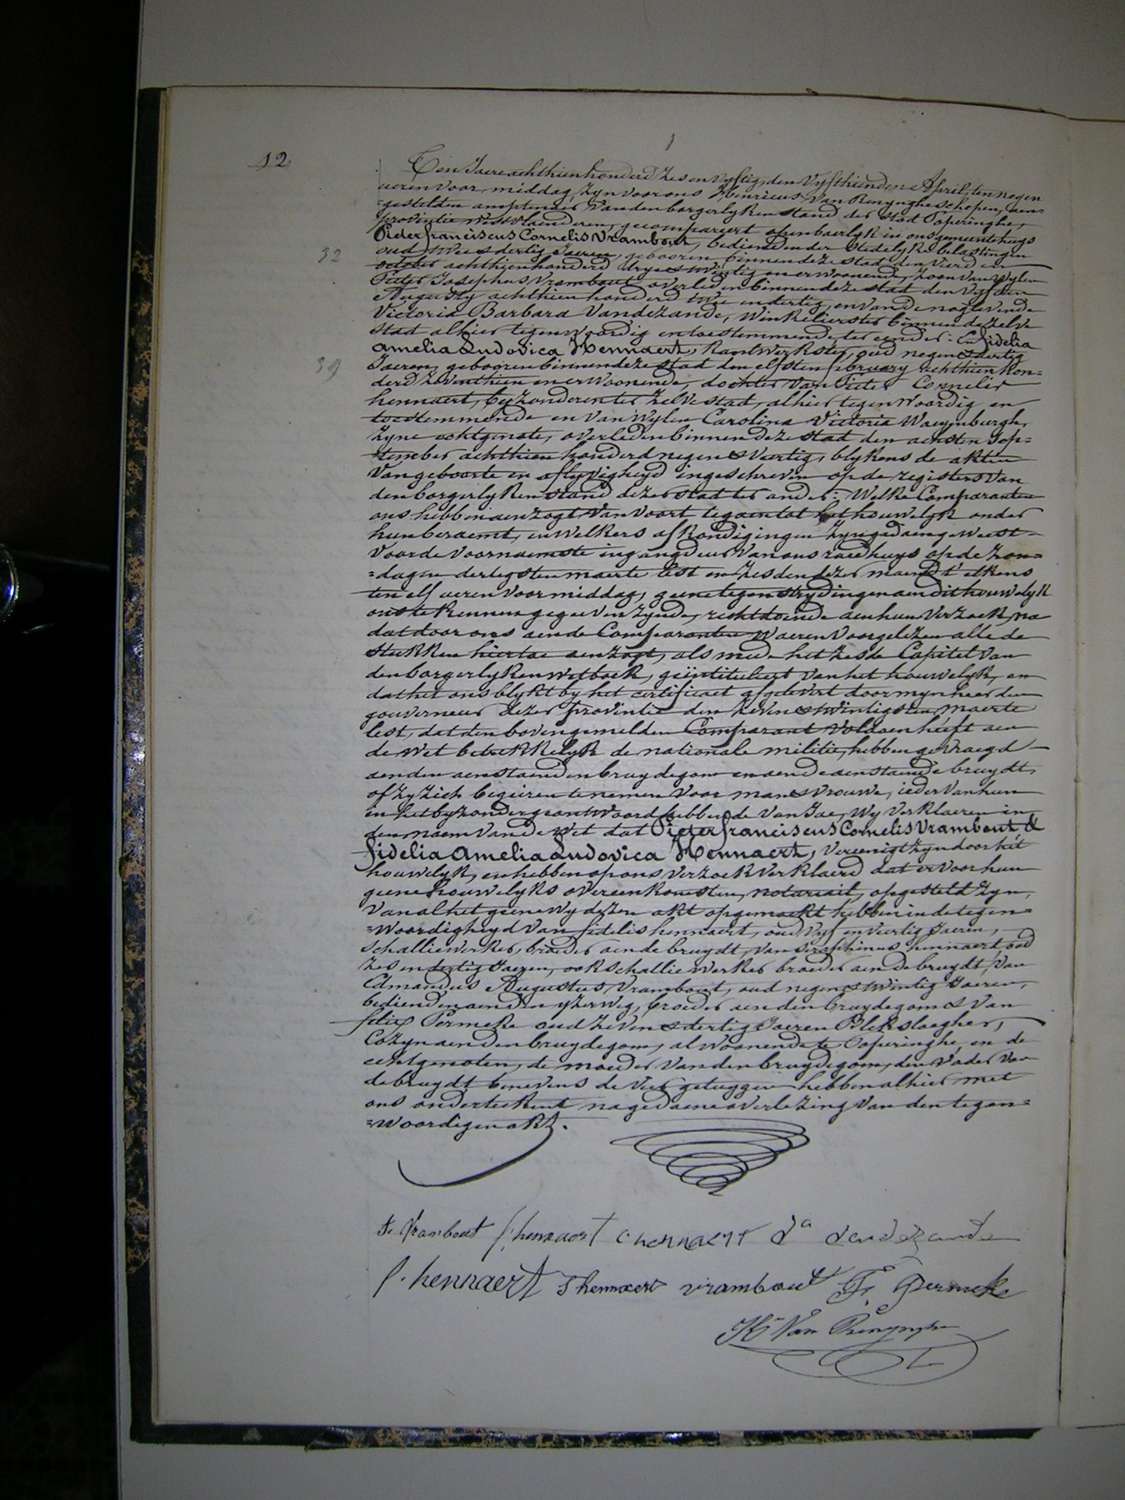 12
Ten Jaere achthien honderd zes en vyftig, den vyfthienden April, ten negen
ueren voor middag, zyn voor ons Henricus Van Renynghe schepen, aen-
=gestelden amptenaer van den borgerlyken stand der stad Poperinghe,
provintie westvlaenderen, gecompareert openbaerlyk in ons gemeentehuys
Pieter franciscus Cornelis Vrambout, bediende der stedelyke belastingen
32
oud twee & dertig Jaeren, geboren binnen deze stad den vierden
october achthien honderd drye & twintig en er woonende, zoon van wylen
Pieter Josephus Vrambout overleden binnen deze stad den vyfden
Augusty achthien honderd twee en dertig, en van de nog levende
Victoria Barbara Vandezande, Winkelierster binnen dezelve
stad alhier tegenwoordig en toestemmende ter eender: En fidelia
amelia Ludovica Hennaert, kantwerkster, oud negen & dertig
39
Jaeren, geboren binnen deze stad den elfsten february achthien hon-
derd zeventhien en er woonende, dochter van Pieter Cornelis
hennaert, byzonderen ter zelve stad, alhier tegenwoordig en
toestemmende en van wylen Carolina Victoria Waeyenburgh,
zyne echtgenote, overleden binnen deze stad den achsten Sep-
=tember achthien honderd negen & veertig, blykens de akten
van geboorte en aflyvigheyd ingeschreven op de registers van
den borgerlyken stand dezer stad ter ander: Welke Comparanten
ons hebben aenzogt van voort te gaen tot het houwelyk onder
hun beraemt, en welkers afkondigingen zyn gedaen geweest
voor de voornaemste ingangdeur van ons raedhuys op de zon=
=dagen dertigsten maerte lest en zesden dezer maend t'elkens
ten elf ueren voor middag, geene tegenstrydingen aen dit houwelyk
ons te kennen gegeven zynde, rechtdoende aen hun verzoek, na
dat door ons aen de Comparanten waeren voorgelezen alle de
stukken hiertoe aenzogt, als mede het zesde Capitel van
den borgerlyken wetboek, geintituleert van het houwelyk, en
dat het ons blykt by het certificaet afgelevert door mynheer den
gouverneur dezer provintie den zeven & twintigsten maerte
lest, dat den bovengemelden Comparant voldaen heeft aen
de wet betrekkelyk de nationale militie, hebben gevraegd
aen den aenstaenden bruydegom en aen de aenstaende bruydt,
of zy zich begeeren te nemen voor man & vrouwe, ieder van hun
in het byzonder geantwoord hebbende van Jae, Wy verklaeren in
den naem van de wet dat Pieter franciscus Cornelis Vrambout &
fidelia amelia Ludovica Hennaert, vereenigt zyn door hét
houwelyk, en hebben op ons verzoek verklaerd dat er voor hun
geene houwelyks overeenkomsten, notariaet, opgesteld zyn,
van al het geene wy dezen akt opgemaekt hebben in de tegen=
=woordigheyd van fidelis hennaert, oud vyf en veertig Jaeren,
schalliewerker, broeder aen de bruydt, van Seraphinus hennaert, oud
zes en dertig Jaeren, ook schalliewerker broeder aen de bruydt, van
Edmondus Augustus Vrambout, oud negen & twintig Jaeren,
bedienden aen den yzerweg, broeder aen den bruydegom & van
felix Permeke oud zeven & dertig Jaeren Blekslaegher,
Cozyn aen den bruydegom, al woonende te Poperinghe, en de
echtgenoten, de moeder van den bruydegom, den vader van
de bruydt benevens de vier getuygen hebben alhier met
ons onderteekent na gedaene overlezing van den tegen=
=woordigen akt.
Vrambout f. hennaert C hennaert vandezande
f. hennaert S hennaert vrambout F. Permeke
Hi Van Renynghe